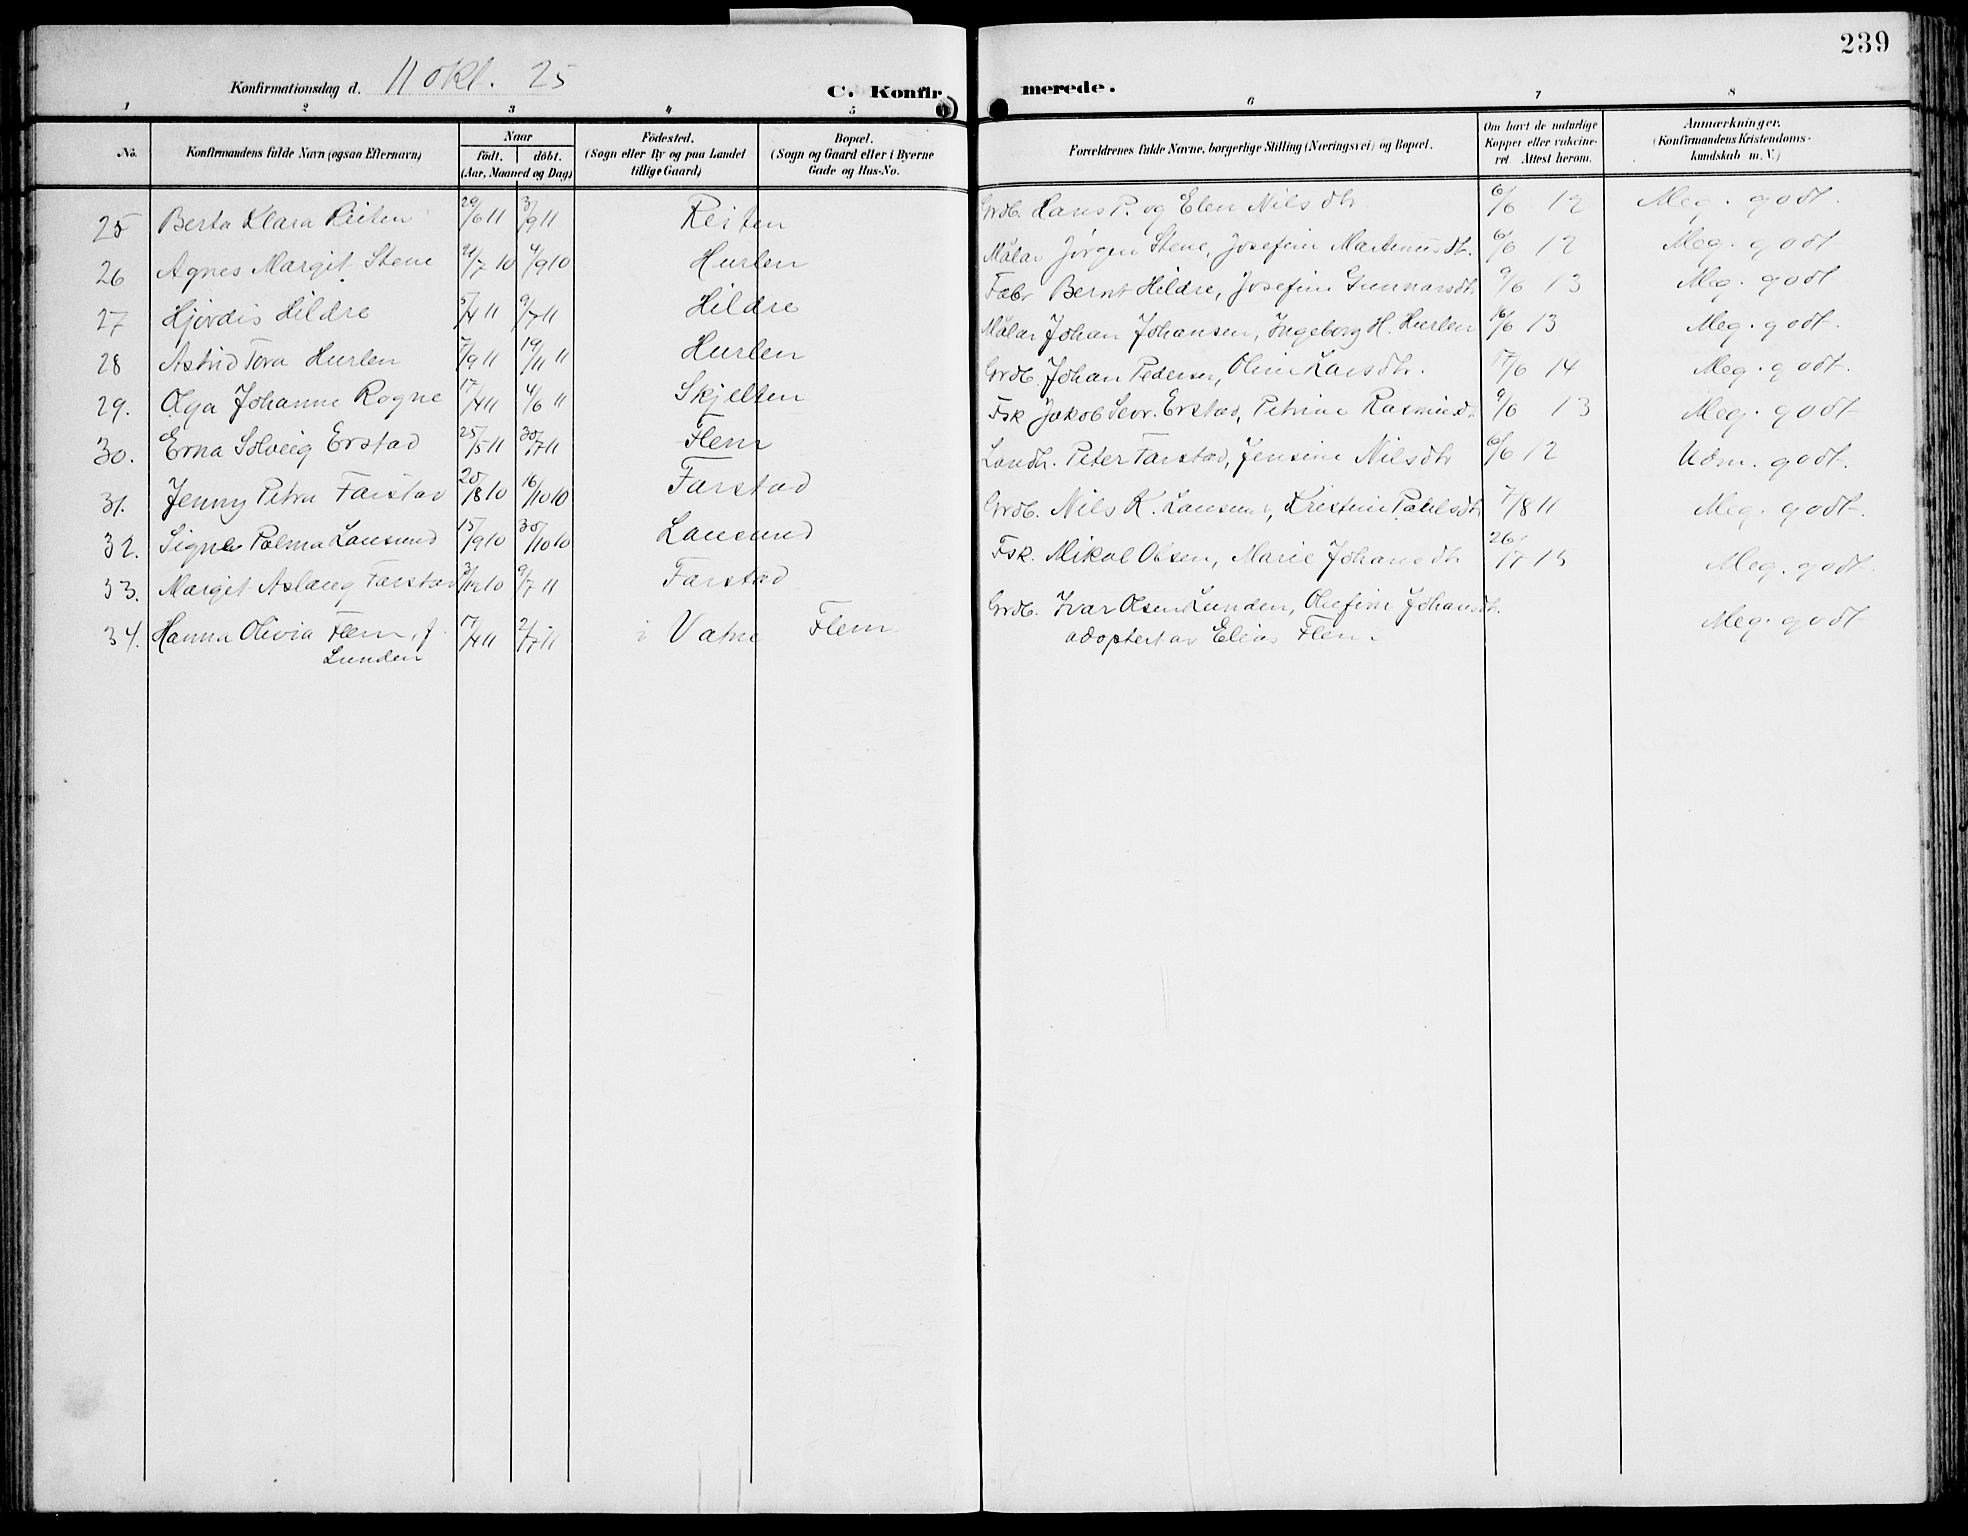 239
Konfirmationsdag d. 11 okt. 25 C. Konfirmerede.
1 2 3 4 5 6 7 8
No. Konfirmandens fulde Navn (ogsaa Efternavn) Naar födt. döbt. (Aar, Maaned og Dag) Födested. (Sogn eller By og paa Landet tillige Gaard) Bopæl. (Sogn og Gaard eller i Byerne Gade og Hus-No. Forældrenes fulde Navne, borgerlige Stilling (Næringsvei) og Bopæl. Om havt de naturlige Kopper eller vakcineret. Attest herom. Anmærkninger. (Konfirmandens Kristendomskundskab m. V.)
25 Berta Klara Reiten 29/6 11 3/9 11 Reiten Grdb. Hans P. og Elen Nilsdtr. 6/6 12 Meg. godt.
26 Agnes Margit Stene 21/7 10 4/9 10 Hurlen Målar Jørgen Stene, Josefine Martinusdt. 6/6 12 Meg. godt
27 Hjördis Hildre 5/4 11 9/7 11 Hildre Fabr Bernt Hildre, Josefine Gunnarsdtr 9/6 13 Meg. godt
28 Astrid Tora Hurlen 7/9 11 19/11 11 Hurlen Målar Johan Johansen, Ingeborg H. Hurlen 16/6 13 Meg. godt.
29. Olga Johanne Rogne 17/4 11 4/6 11 Skjelten Grdb. Johan Pedersen, Oline Larsdtr. 17/6 14 Meg. godt.
30. Erna Solveig Erstad 25/5 11 30/7 11 Flem Fsk Jakob Sevr. Erstad, Petrine Rasmusd. 9/6 13 Meg. godt
31. Jenny Petra Farstad 20/8 10 16/10 10 Farstad Landh. Peter Farstad, Jensine Nilsdtr 6/6 12 Udm. godt.
32. Signe Palma Lausund 15/9 10 30/10 10 Lausund Grdb. Nils K. Lausund, Kristine Pahlsdtr 7/8 11 Meg. godt.
33. Margit Aslaug Farstad 3/12 10 9/7 11 Farstad Fsk. Mikal Olsen, Marie Johansdtr 26/7 15 Meg. godt.
34. Hanna Olivia Flem, f. Lunden 17/4 11 2/7 11 i Vatne Flem Grdb. Ivar Olsen Lunden, Olufine Johansdtr.
adoptert av Elias Flem Meg. godt